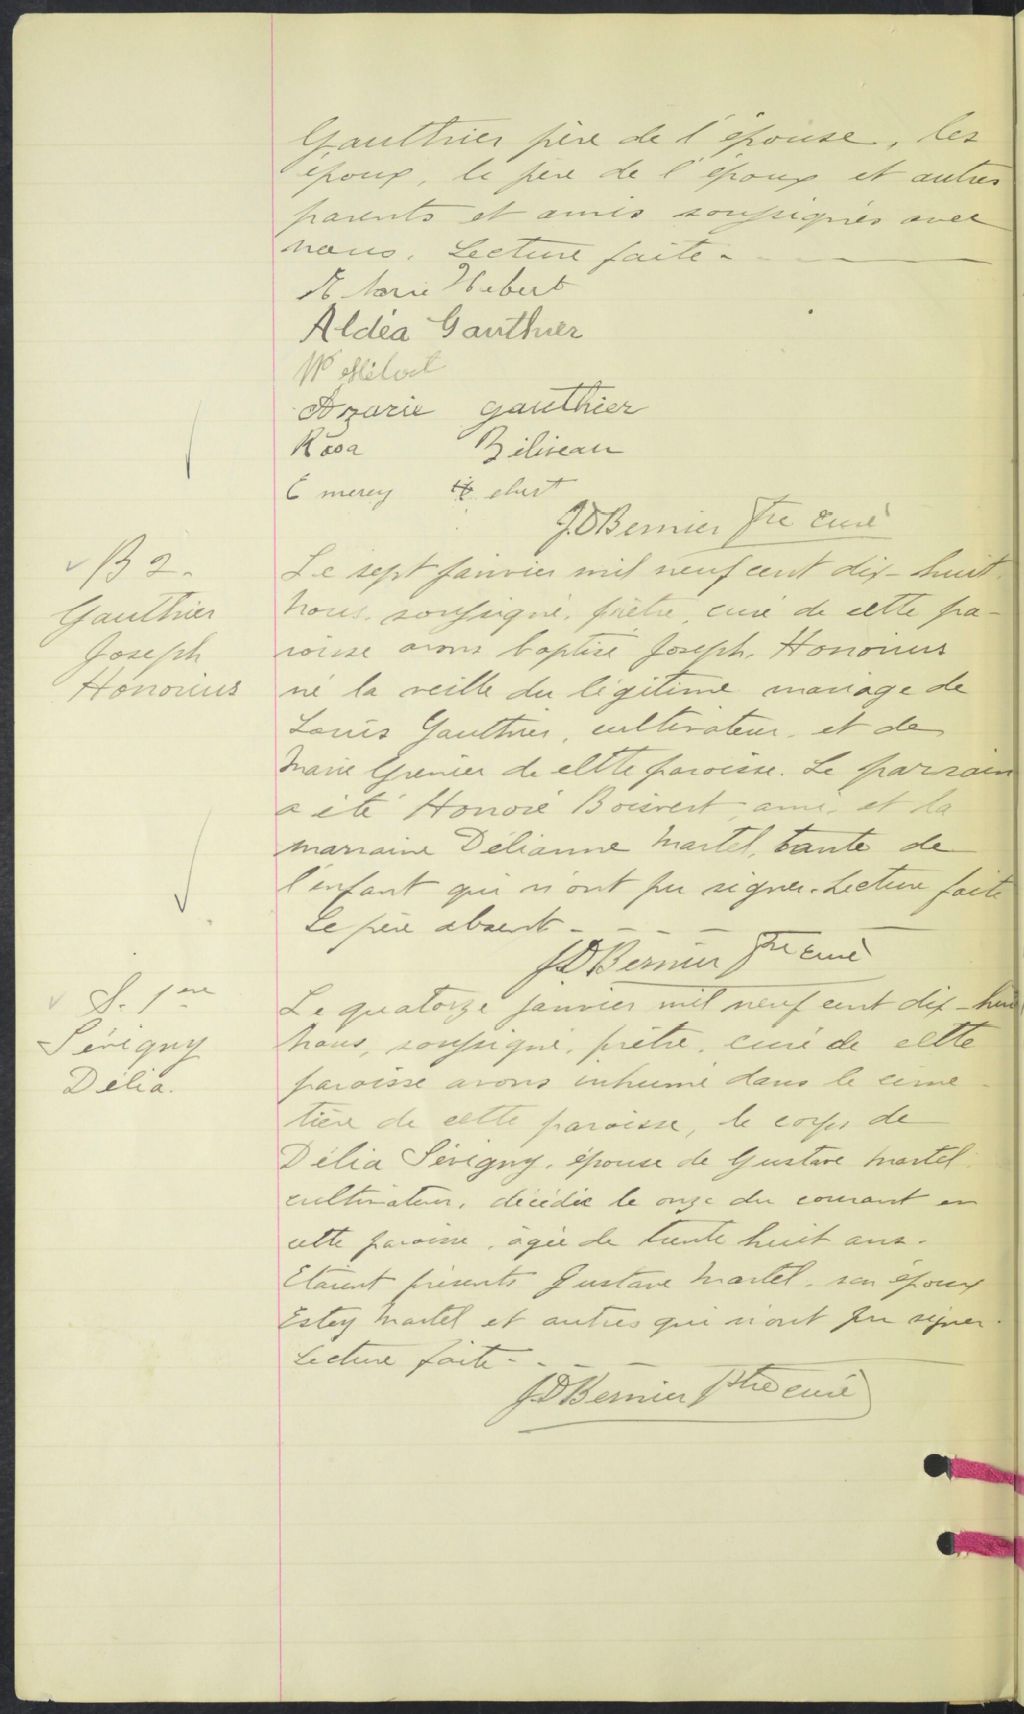 Gauthier père de l'épouse, les
époux, le père de l'époux et autres
parents et amis soussignés avec
nous. Lecture faite.
Hebert
Aldéa Gauthier
Azarie gauthier
Rosa Béliveau
Emerey Hebert
J.D Bernier Ptre curé
B 2.
Gauthier
Joseph
Honorius
Le sept janvier mil neuf cent dix-huit,
nous, soussigné, prêtre, curé de cette pa-
roisse avons baptisé Joseph, Honorius
né la veille du légitime mariage de
Louis Gauthier, cultivateur, et de
Marie Grenier de cette paroisse. Le parrain
a été Honoré Boisvert ami, et la
marraine Délianne Martel, tante de
l'enfant qui n'ont pu signer. Lecture faite
Le père absent
J.D Bernier Ptre curé
S. 1ère
Sévigny
Délia.
Le quatorze janvier mil neuf cent dix-huit
nous, soussigné, prêtre, curé de cette
paroisse avons inhumé dans le cime-
tière de cette paroisse, le corps de
Délia Sévigny, épouse de Gustave Martel
cultivateur, décédée le onze du courant en
cette paroisse, âgée de trente huit ans.
Etaient présents Gustave Martel, son époux
Estey Martel et autres qui n'ont pu signer.
Lecture faite
J.D Bernier Ptre curé